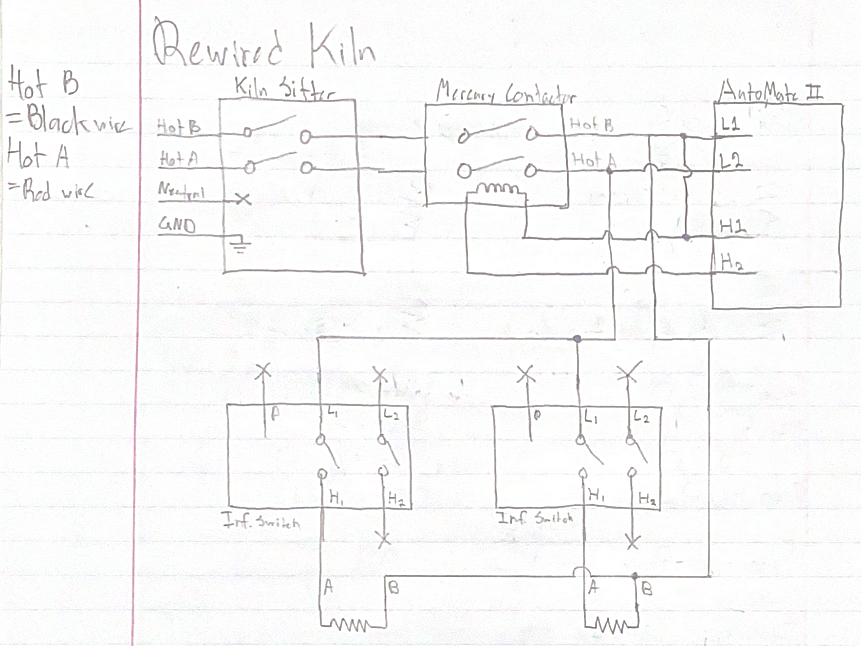 Rewired Kiln
Hot B
= Black wire
Hot A
= Red wire
Kiln Sitter
Mercury Contactor
AutoMate II
Hot B
Hot A
Neutral
GND
Hot B
Hot A
L1
L2
H1
H2
P
L1
L2
H1
H2
Inf. Switch
P
L1
L2
H1
H2
Inf. Switch
A
B
A
B